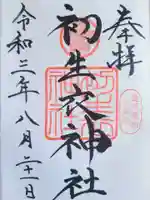 奉拝
初生衣神社
令和三年八月二十一日